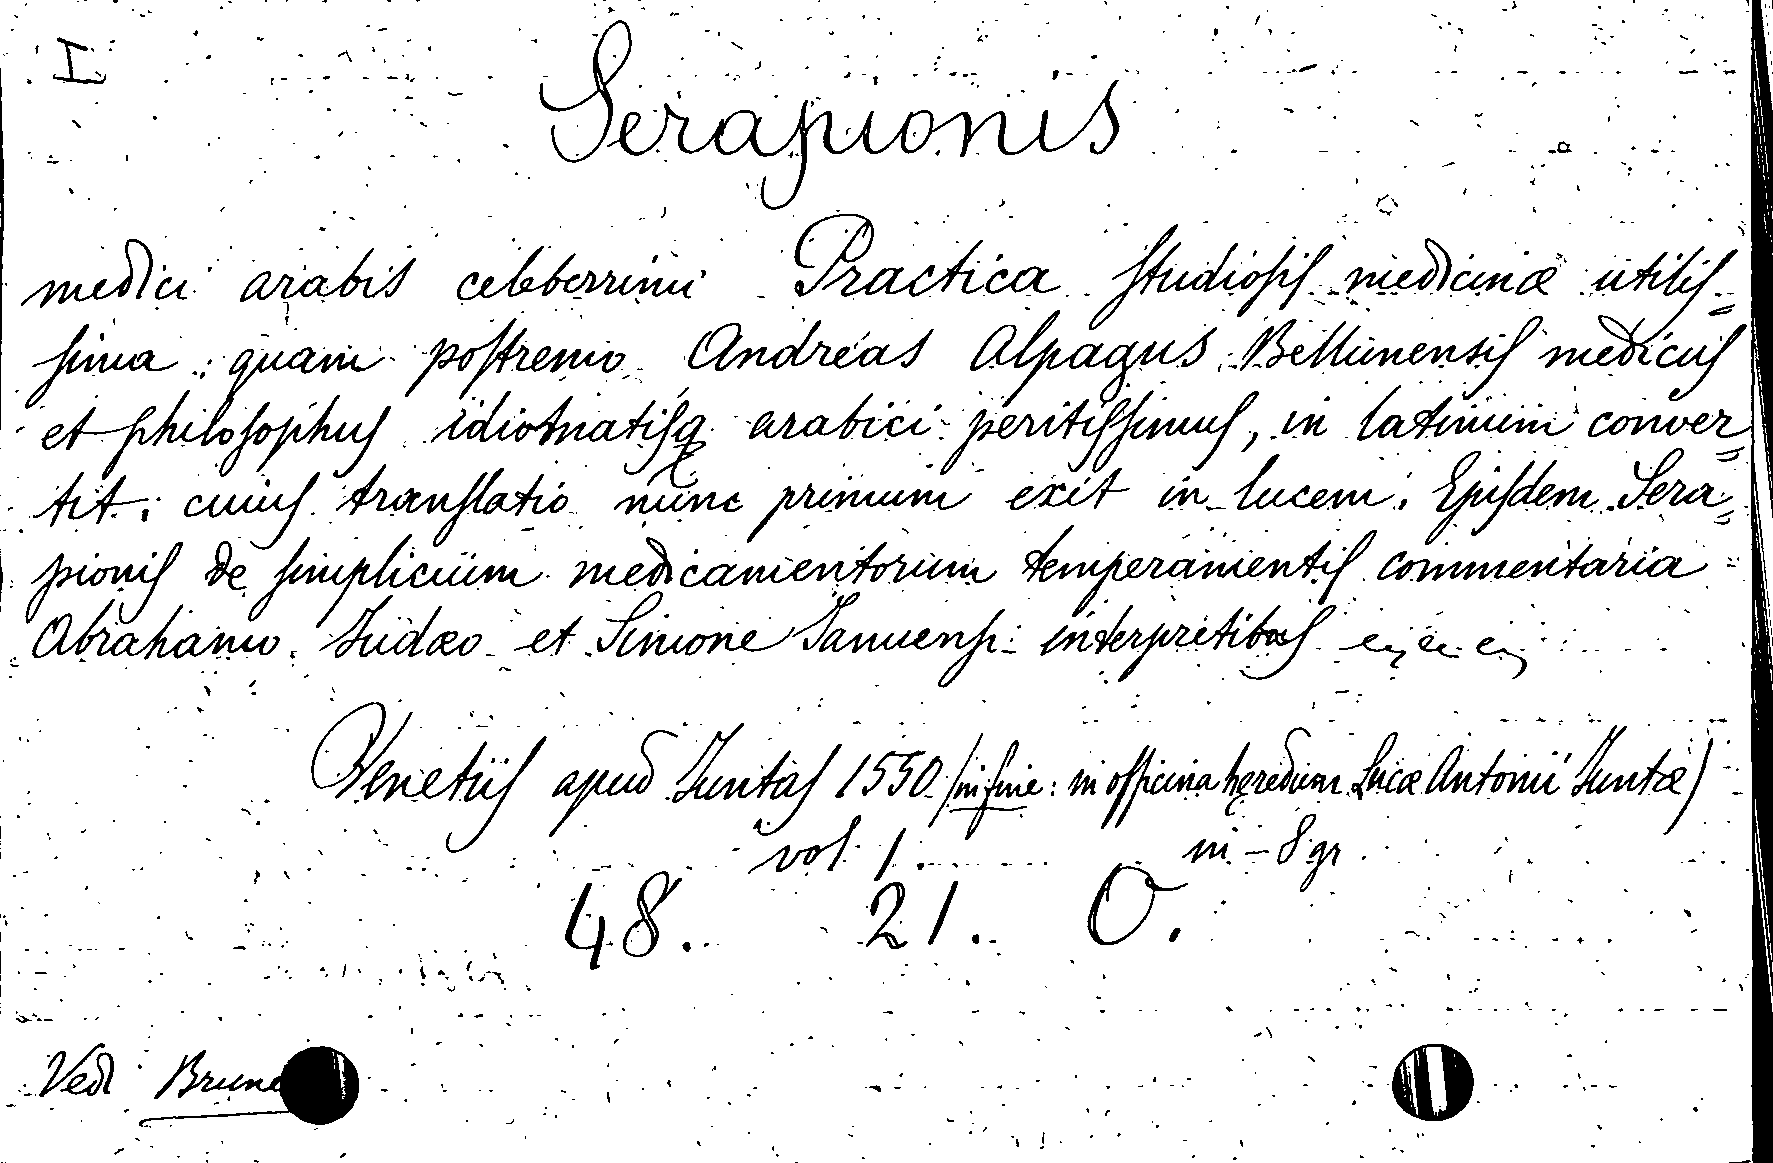 I
Serapionis
medici arabis celeberrimi Practica studiosis medicinæ utilis=
sima: quam postremo Andreas Alpagus Bellunensis medicus
et philosophus idiomatisq arabici peritissimus, in latinum conver=
tit: cuius translatio nunc primum exit in lucem. Ejusdem Sera=
pionis de simplicium medicamentorum temperamentis commentaria
Abrahamo Judæo et Simone Januensi interpretibus
Venetiis apud Juntas 1550 (in fine: in officina hęredum Lucæ Antonii Juntæ)
vol 1. in-8 gr
48. 21. O.
Vedi